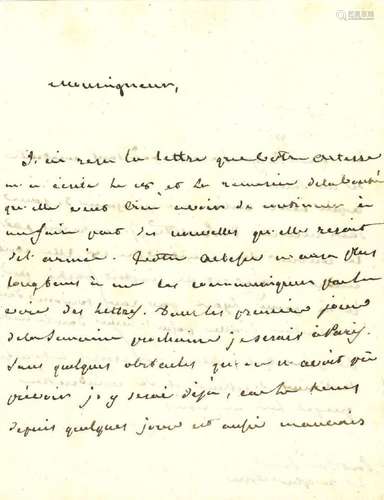 Monseigneur,
J'ai reçu la lettre que Votre Altesse
m'a écrite le 28, et la remercie de la bonté
qu'elle veut bien avoir de continuer à
me faire part des nouvelles qu'elle reçoit
de l'armée. Votre Altesse n'aura plus
longtems à me les communiquer par la
voie des lettres. Dans les premiers jours
de la semaine prochaine je serais à Paris.
Sans quelques obstacles qu'on n'avoit pu
prévoir j'y serai déjà, car le tems
depuis quelques jours est aussi mauvais